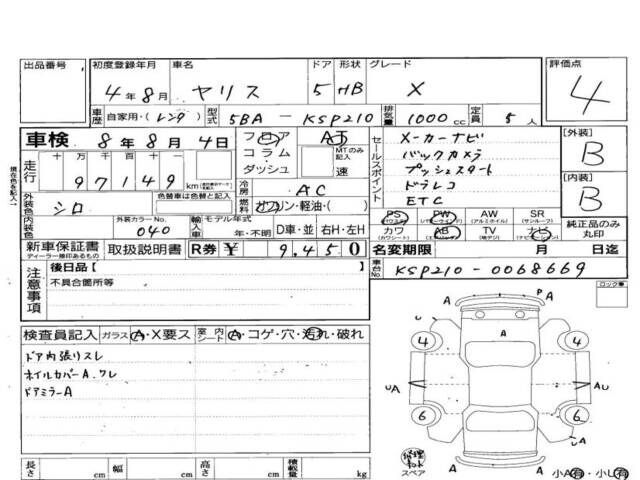 出品番号 初度登録年月 車名 ドア 形状 グレード 評価点
4年8月 ヤリス 5 HB X 4
車歴 自家用・(レンタ) 型式 5BA - KSP210 排気量 1000 cc 定員 5 人
車検 8年8月4日 フロア コラム・ダッシュ AT MTのみ記入 速
セールスポイント
メーカーナビ
バックカメラ
プッシュスタート
ドラレコ
ETC
【外装】 B
【内装】 B
走行 十 万 千 百 十 一
97149 km
冷房 AC
外装色 シロ 色替車は色替と記入 燃料 ガソリン・軽油・( )
内装色 外装カラーNo. 040 輸入車 モデル年式 年・不明 D車・並 右H・左H
PS (パワステ) PW (パワーウィンドウ) AW (アルミホイル) SR (サンルーフ)
カワ (カワシート) AB (エアバッグ) TV (地デジ) ナビ (ナビゲーション)
純正品のみ丸印
新車保証書 ディーラー捺印あるもの 取扱説明書 R券 ¥ 9,450
名変期限 月 日迄
車台No. KSP210-0068669
注意事項 後日品【 】
不具合箇所等
検査員記入 ガラス A・X要ス 室内シート A・コゲ・穴・汚れ・破れ
ドア内張りスレ
ホイルカバーA.ワレ
ドアミラーA
長さ cm 幅 cm 高さ cm 積載量 kg
現在色を記入
ロック車
A P A
A
4 4
A A
UA AU
6 6
A
A A
修理キット
スペア
小A有・小U有